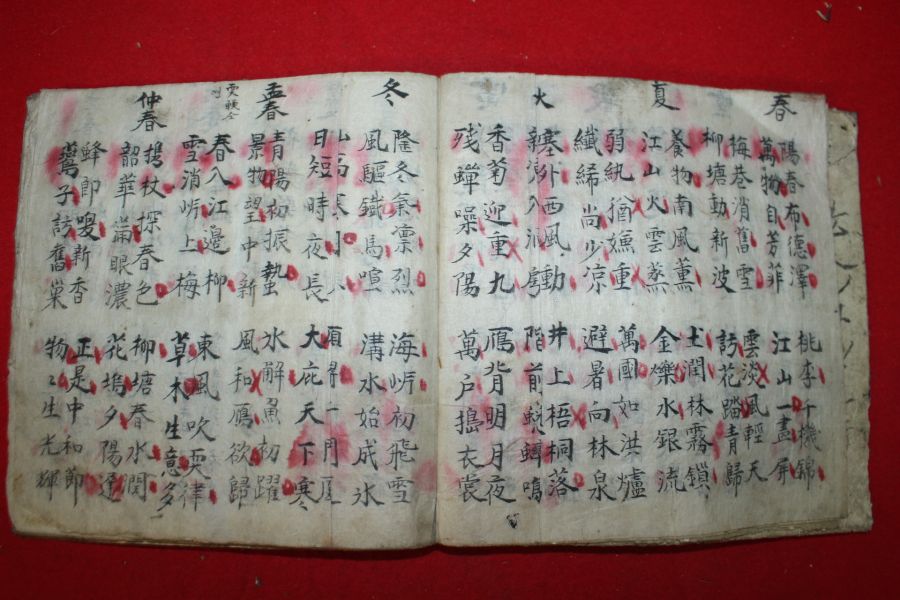 春
陽春布德澤
桃李千機錦
萬物自芳菲
江山一畫屏
梅巷消舊雪
雲淡風輕天
柳塘動新波
訪花踏青歸
夏
養物南風薰
土潤林霧鎖
江山火雲蒸
金爍水銀流
弱紈猶嫌重
萬國如洪爐
纖絺尚少凉
避暑向林泉
火
塞外西風動
井上梧桐落
入
階前蟋
鳴
香菊迎重九
鴈背明月夜
殘蟬噪夕陽
萬戶搗衣裳
冬
隆冬氣凛烈
海岍初飛雪
風驅鐵馬喧
溝水始成氷
山高寒
一門
日短時夜長
大庇天下寒
孟春
青陽初振蟄
水解魚初躍
景物望中新
風和鴈欲歸
春入江邊柳
東風吹律
雪消岍上梅
草木生意多
仲春
携杖探春色
柳塘春水闊
韶華滿眼濃
花塢夕陽遲
蜂卽嗅新香
正是中和節
子訪舊巢
物〻生光輝